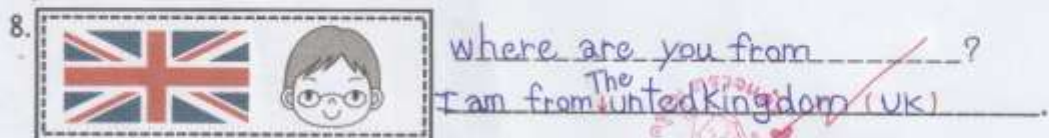 8. where are you from ?
I am from The unted kingdom (UK) .